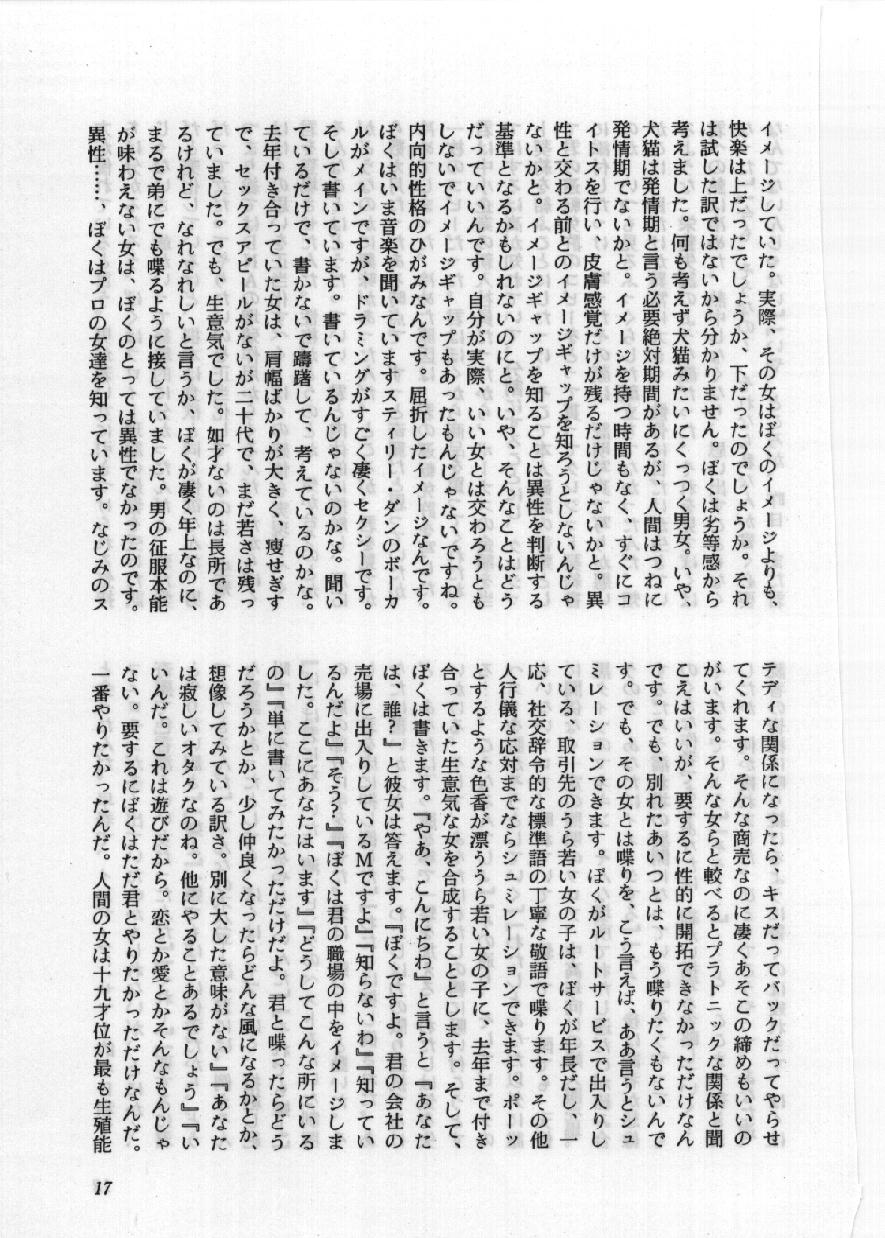 イメージしていた。実際、その女はぼくのイメージよりも、
快楽は上だったでしょうか、下だったのでしょうか。それ
は試した訳ではないから分かりません。ぼくは劣等感から
考えました。何も考えず犬猫みたいにくっつく男女。いや、
犬猫は発情期と言う必要絶対期間があるが、人間はつねに
発情期でないかと。イメージを持つ時間もなく、すぐにコ
イトスを行い、皮膚感覚だけが残るだけじゃないかと。異
性と交わる前とのイメージギャップを知ろうとしないんじゃ
ないかと。イメージギャップを知ることは異性を判断する
基準となるかもしれないのにと。いや、そんなことはどう
だっていいんです。自分が実際、いい女とは交わろうとも
しないでイメージギャップもあったもんじゃないですね。
内向的性格のひがみなんです。屈折したイメージなんです。
ぼくはいま音楽を聞いていますスティリー・ダンのボーカ
ルがメインですが、ドラミングがすごく凄くセクシーです。
そして書いています。書いているんじゃないのかな。聞い
ているだけで、書かないで躊躇して、考えているのかな。
去年付き合っていた女は、肩幅ばかりが大きく、痩せぎす
で、セックスアピールがないが二十代で、まだ若さは残っ
ていました。でも、生意気でした。如才ないのは長所であ
るけれど、なれなれしいと言うか、ぼくが凄く年上なのに、
まるで弟にでも喋るように接していました。男の征服本能
が味わえない女は、ぼくのとっては異性でなかったのです。
異性……、ぼくはプロの女達を知っています。なじみのス
テディな関係になったら、キスだってバックだってやらせ
てくれます。そんな商売なのに凄くあそこの締めもいいの
がいます。そんな女らと較べるとプラトニックな関係と聞
こえはいいが、要するに性的に開拓できなかっただけなん
です。でも、別れたあいつとは、もう喋りたくもないんで
す。でも、その女とは喋りを、こう言えば、ああ言うとシュ
ミレーションできます。ぼくがルートサービスで出入りし
ている、取引先のうら若い女の子は、ぼくが年長だし、一
応、社交辞令的な標準語の丁寧な敬語で喋ります。その他
人行儀な応対までならシュミレーションできます。ポーッ
とするような色香が漂ううら若い女の子に、去年まで付き
合っていた生意気な女を合成することとします。そして、
ぼくは書きます。『やあ、こんにちわ』と言うと『あなた
は、誰?』と彼女は答えます。『ぼくですよ。君の会社の
売場に出入りしているMですよ』『知らないわ』『知ってい
るんだよ』『そう?』『ぼくは君の職場の中をイメージしま
した。ここにあなたはいます』『どうしてこんな所にいる
の』『単に書いてみたかっただけだよ。君と喋ったらどう
だろうかとか、少し仲良くなったらどんな風になるかとか、
想像してみている訳さ。別に大した意味がない』『あなた
は寂しいオタクなのね。他にやることあるでしょう』『い
いんだ。これは遊びだから。恋とか愛とかそんなもんじゃ
ない。要するにぼくはただ君とやりたかっただけなんだ。
一番やりたかったんだ。人間の女は十九才位が最も生殖能
17